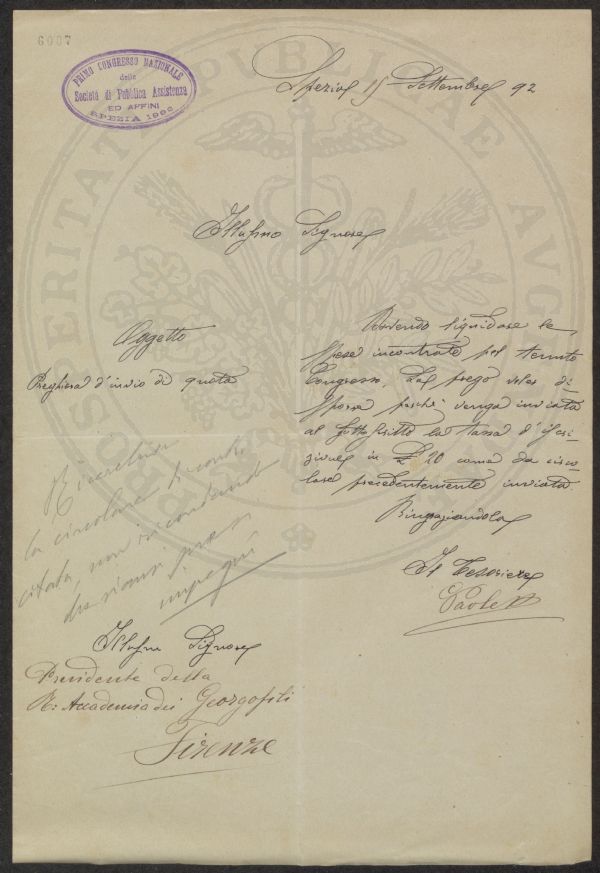 6007
PRIMO CONGRESSO NAZIONALE
delle
Società di Pubblica Assistenza
ED AFFINI
SPEZIA 1892
Spezia 15 Settembre 92
Illustrissimo Signore
Oggetto
Preghiera d'invio di quota
Dovendo liquidare le
spese incontrate pel tenuto
Congresso, La prego voler di-
sporre perchè venga inviata
al sottoscritto la tassa d'iscri-
zione in £ 20 come da circo-
lare precedentemente inviata
Ringraziandola
Il Tesoriere
Ricercherai
la circolare
citata, non ricordando
che siansi presi
impegni
Signore
Presidente della
R: Accademia dei Georgofili
Firenze